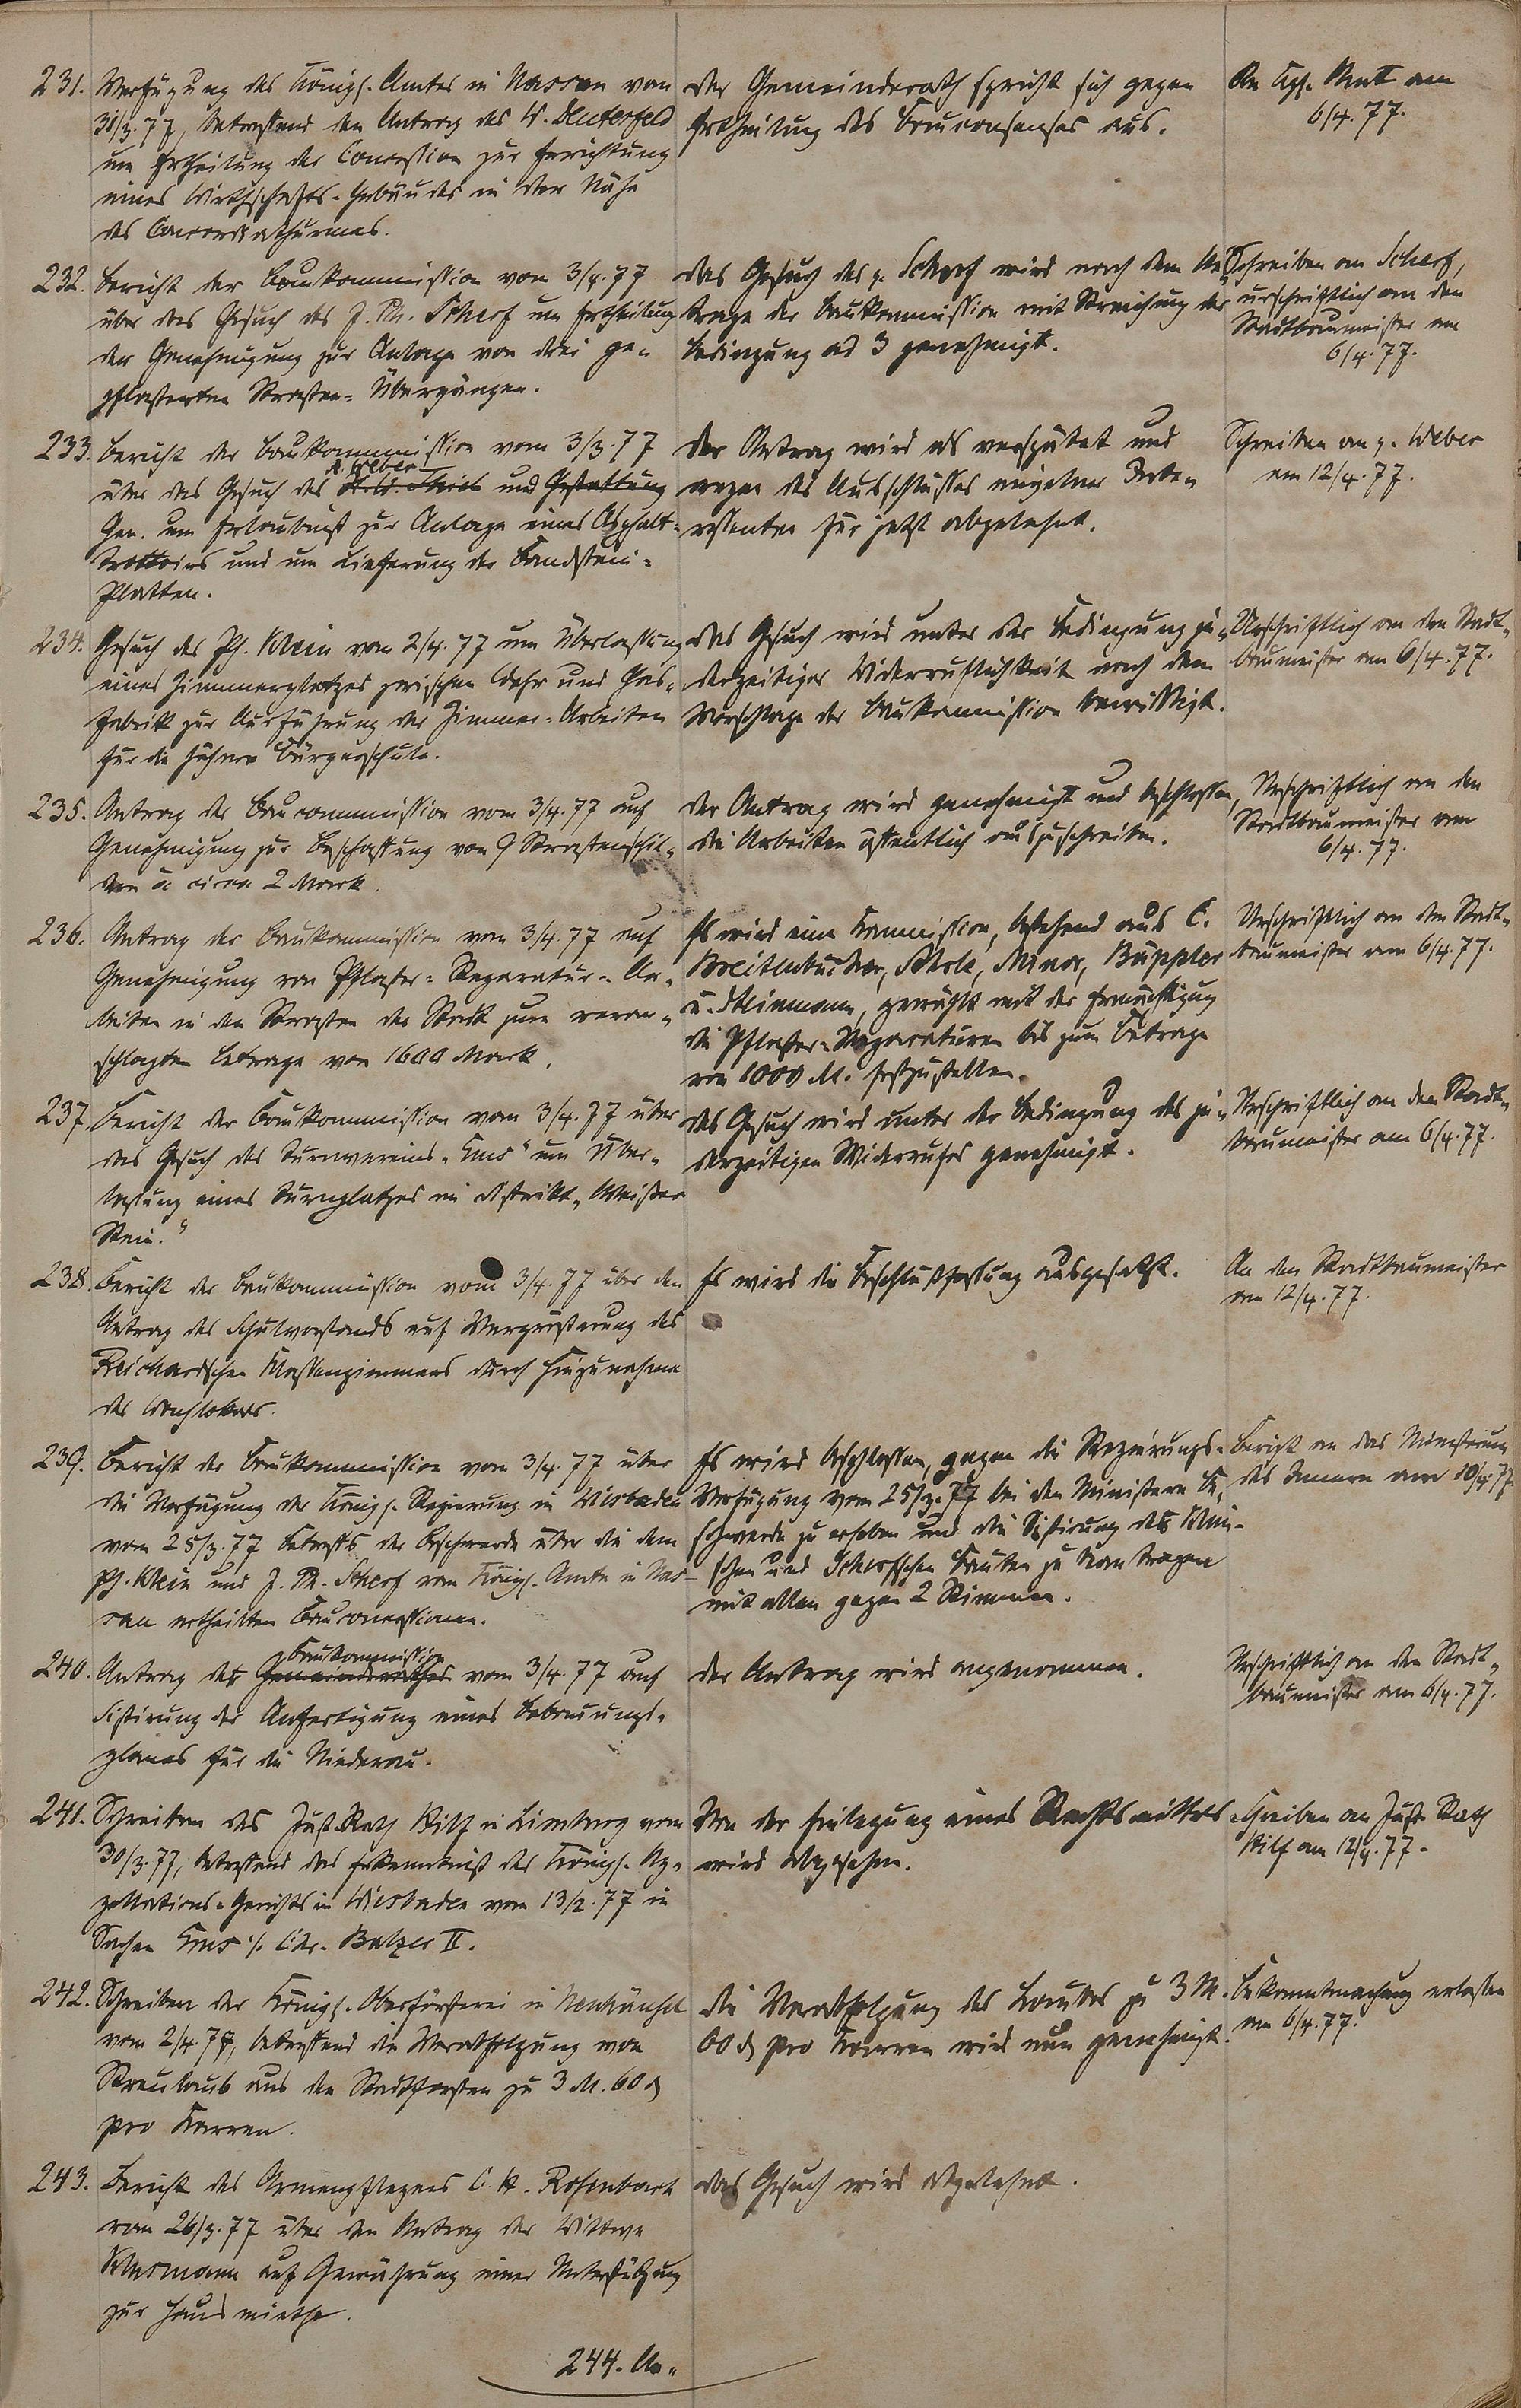 231. Verfügung des Königl. Amtes in Nassau vom
30/3. 77, betreffend den Antrag des W.
um Ertheilung der Concession zur Errichtung
eines Wirthschafts-Gebäudes in der Nähe
des Concordiathurmes.
Der Gemeinderath spricht sich gegen
Ertheilung des Bauconsenses aus.
An Kgl. Amt am
6/4. 77.
232. Bericht der Baukommission vom 3/4. 77
über das Gesuch des J. Ph. Scherf um Ertheilung
der Genehmigung zur Anlage von drei ge-
pflasterten Straßen-Übergängen.
Das Gesuch des p. Scherf wird nach dem An-
trage der Baukommission mit Streichung der
Bedingung ad 3 genehmigt.
Schreiben an Scherf,
urschriftlich an den
Stadtbaumeister am
6/4. 77.
233. Bericht der Baukommission vom 3/3. 77
über das Gesuch des A. Weber und Gestattung
Gen. um Erlaubniß zur Anlage eines Asphalt-
trottoirs und um Lieferung der Sandstein-
Platten.
Der Antrag wird als verspätet und
wegen des Ausschlusses einzelner Inte-
ressenten für jetzt abgelehnt.
Schreiben an p. Weber
am 12/4. 77.
234. Gesuch des Ph. Klein vom 2/4. 77 um Überlassung
eines Zimmerplatzes zwischen Lahn und Gas-
fabrik zur Ausführung der Zimmer-Arbeiten
für die höhere Bürgerschule.
Das Gesuch wird unter der Bedingung je-
derzeitiger Widerruflichkeit nach dem
Vorschlage der Baukommission bewilligt.
Urschriftlich an den Stadt-
baumeister am 6/4. 77.
235. Antrag der Baucommission vom 3/4. 77 auf
Genehmigung zur Beschaffung von 9 Straßenschil-
dern à circa 2 Mark.
Der Antrag wird genehmigt und beschlossen,
die Arbeiten öffentlich auszuschreiben.
Urschriftlich an den
Stadtbaumeister am
6/4. 77.
236. Antrag der Baukommission vom 3/4. 77 auf
Genehmigung von Pflaster-Reparatur-Ar-
beiten in den Straßen der Stadt zum veran-
schlagten Betrage von 1600 Mark.
Es wird eine Kommission, bestehend aus C.
Breitenbücher, Minor, Büppler
u. Steinmann, gewählt mit der Ermächtigung
die Pflaster-Reparaturen bis zum Betrage
von 1000 M. festzustellen.
Urschriftlich an den Stadt-
baumeister am 6/4. 77.
237. Bericht der Baukommission vom 3/4. 77 über
das Gesuch des Turnvereins „Ems" um Über-
lassung eines Turnplatzes im Distrikt „Weißer
Stein."
Das Gesuch wird unter der Bedingung des je-
derzeitigen Widerrufes genehmigt.
Urschriftlich an den Stadt-
baumeister am 6/4. 77.
238. Bericht der Baukommission vom 3/4. 77 über den
Antrag des Schulvorstands auf Vergrößerung des
Reichard'schen Klassenzimmers durch Hinzunahme
des Wachlokals.
Es wird die Beschlußfassung ausgesetzt.
An den Stadtbaumeister
am 12/4. 77.
239. Bericht der Baukommission vom 3/4. 77 über
die Verfügung der Königl. Regierung in Wiesbaden
vom 25/3. 77 betreffs der Beschwerde über die dem
Ph. Klein und J. Ph. Scherf vom Königl. Amte in Nas-
sau ertheilten Bauconcessionen.
Es wird beschlossen, gegen die Regierungs-
Verfügung vom 25/3. 77 bei dem Ministern Be-
schwerde zu erheben und die Sistirung der Klein-
schen und Scherfschen Bauten zu beantragen
mit allen gegen 2 Stimmen.
Bericht an das Ministerium
des Innern am 10/4. 77.
240. Antrag der Gemeinderathes Baukommission vom 3/4. 77 auf
Sistirung der Anfertigung eines Bebauungs-
planes für die Niederau.
Der Antrag wird angenommen.
Urschriftlich an den Stadt-
baumeister am 6/4. 77.
241. Schreiben des Just. Rath Hilf in Limburg vom
30/3. 77, betreffend das Erkenntniß des Königl. Ap-
pellations-Gerichts in Wiesbaden vom 13/2. 77 in
Sachen Ems ./. Chr. Balzer II.
Von der Einlegung eines Rechtsmittels
wird abgesehen.
Schreiben an Just. Rath
Hilf am 12/4. 77.
242. Schreiben der Königl. Oberförsterei in Neuhäusel
vom 2/4. 77, betreffend die Verabfolgung von
Streulaub aus den Stadtforsten zu 3 M. 60 ₰
pro Karren.
Die Verabfolgung des Laubes zu 3 M.
60 ₰ pro Karren wird nun genehmigt.
Bekanntmachung erlassen
am 6/4. 77.
243. Bericht des Armenpflegers C. H. Rosenbach
vom 26/3. 77 über den Antrag der Wittwe
auf Gewährung einer Unterstützung
zur Hausmiethe.
Das Gesuch wird abgelehnt.
244. An-